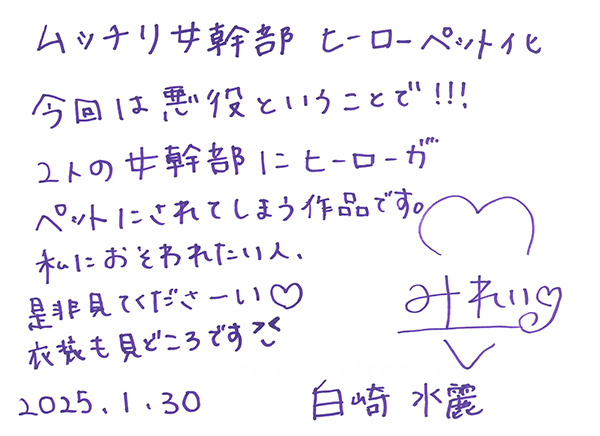 ムッチリ女幹部 ヒーローペット化
今回は悪役ということで!!!
2人の女幹部にヒーローが
ペットにされてしまう作品です。
私におそわれたい人、
是非見てくださーい♡
衣装も見どころです
みれい♡
2025.1.30 白崎 水麗